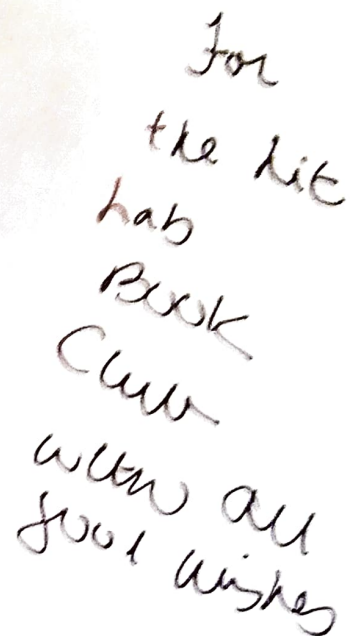 For
the Lit
Lab
Book
Club
with all
good wishes